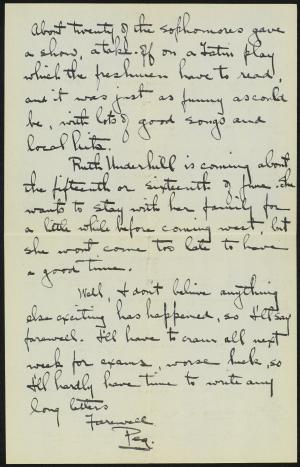 About twenty of the sophomores gave
a show, a take-off on a Latin play
which the freshmen have to read,
and it was just as funny as could
be, with lots of good songs and
local hits.
Ruth Underhill is coming about
the fifteenth or sixteenth of June. She
wants to stay with her family for
a little while before coming west, but
she wont come too late to have
a good time.
Well, I don't belive anything
else exciting has happened, so I'll say
farewell. I'll have to cram all next
week for exams, worse luck, so
I'll hardly have time to write any
long letters
Farewell
Peg.